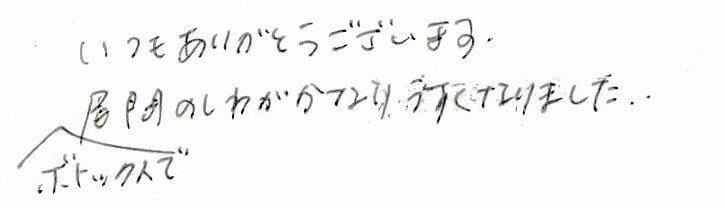 いつもありがとうございます.
眉間のしわがかなりうすくなりました..
ボトックスで